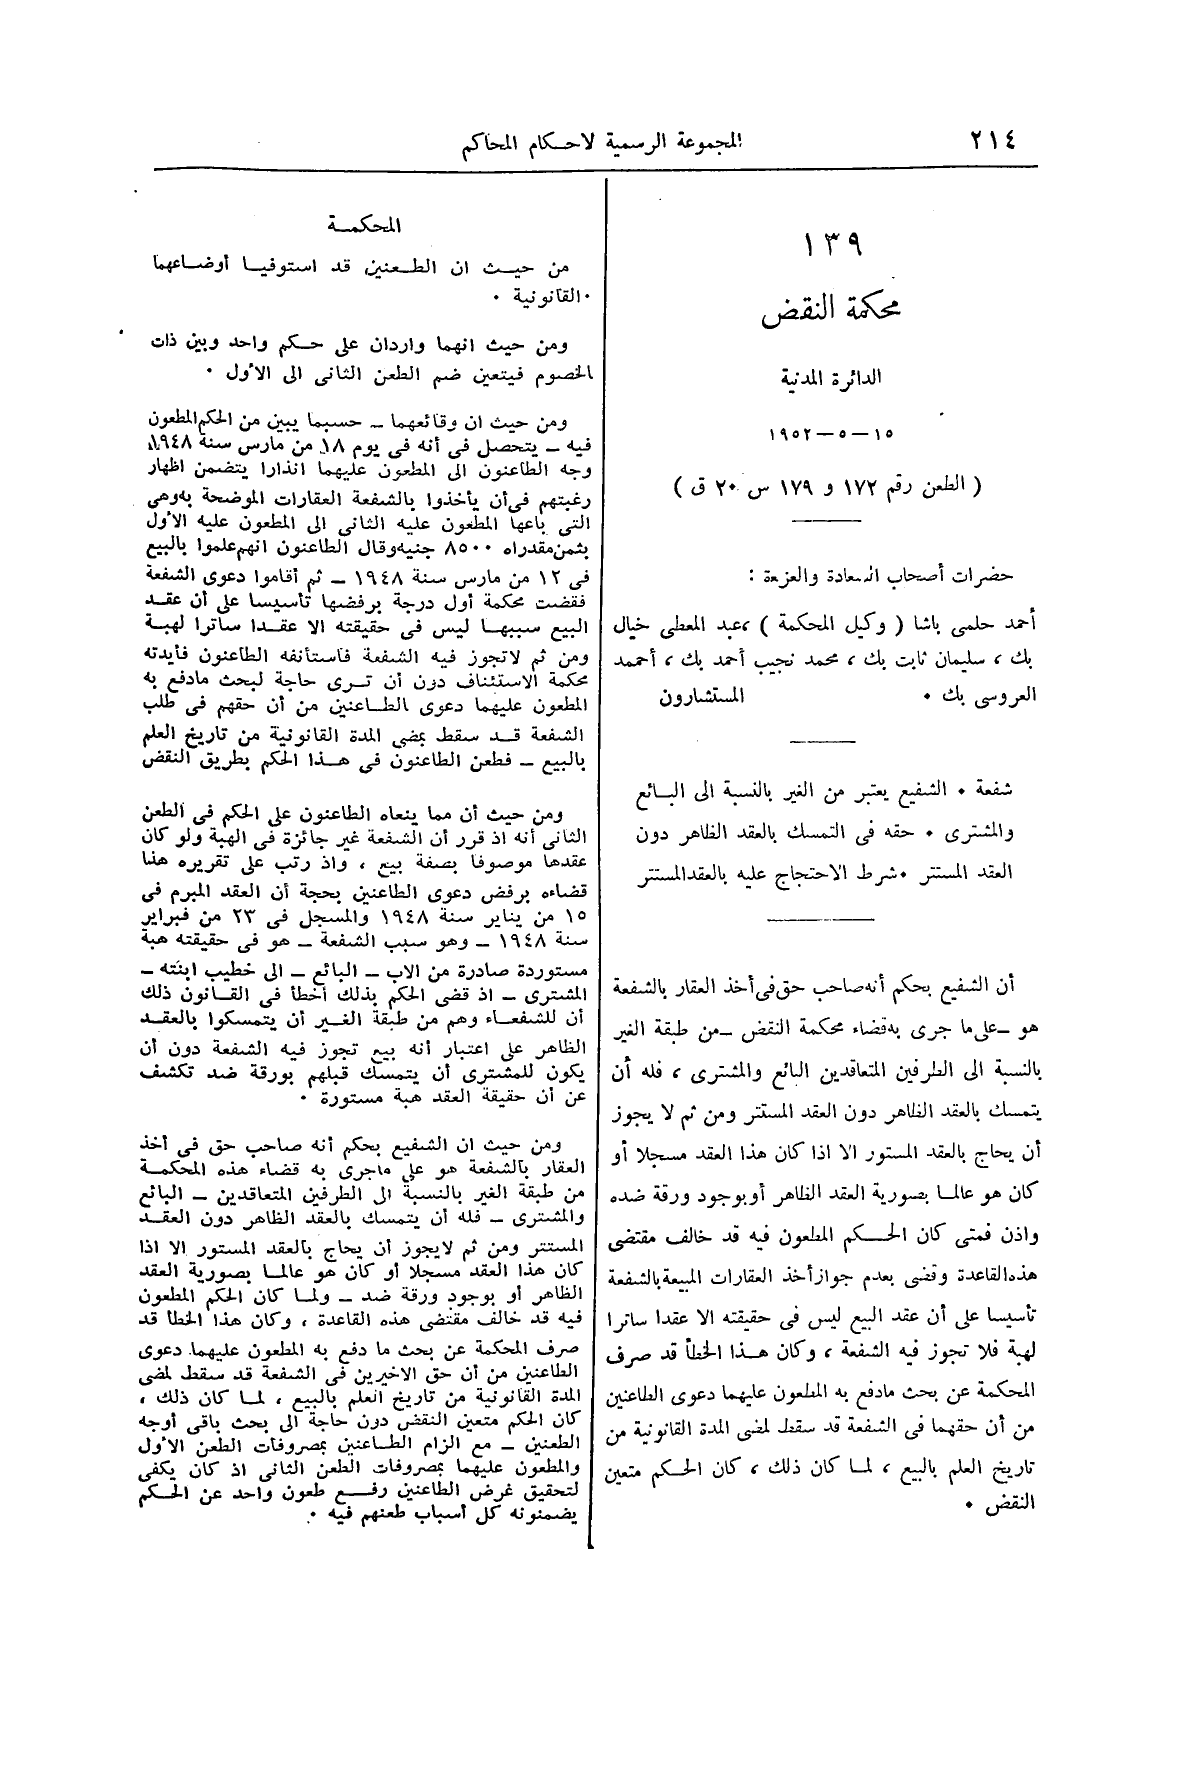 ٢١٤
المجموعة الرسمية لاحكام المحاكم
١٣٩
محكمة النقض
الدائرة المدنية
١٥ — ٥ — ١٩٥٢
( الطعن رقم ١٧٢ و ١٧٩ س ٢٠ ق )
حضرات أصحاب السعادة والعزعة :
أحمد حلمى باشا ( وكيل المحكمة ) ، عبد المعطى خيال
بك ، سليمان ثابت بك ، محمد نجيب أحمد بك ، أحمد
العروسى بك • المستشارون
شفعة • الشفيع يعتبر من الغير بالنسبة الى البائع
والمشترى • حقه فى التمسك بالعقد الظاهر دون
العقد المستتر • شرط الاحتجاج عليه بالعقد المستتر
أن الشفيع بحكم أنه صاحب حق فى أخذ العقار بالشفعة
هو — على ما جرى به قضاء محكمة النقض — من طبقة الغير
بالنسبة الى الطرفين المتعاقدين البائع والمشترى ، فله أن
يتمسك بالعقد الظاهر دون العقد المستتر ومن ثم لا يجوز
أن يحاج بالعقد المستور الا اذا كان هذا العقد مسجلا أو
كان هو عالما بصورية العقد الظاهر أو بوجود ورقة ضده
واذن فمتى كان الحكم المطعون فيه قد خالف مقتضى
هذه القاعدة وقضى بعدم جواز أخذ العقارات المبيعة بالشفعة
تأسيسا على أن عقد البيع ليس فى حقيقته الا عقدا ساترا
لهبة فلا تجوز فيه الشفعة ، وكان هذا الخطأ قد صرف
المحكمة عن بحث مادفع به المطعون عليهما دعوى الطاعنين
من أن حقهما فى الشفعة قد سقط لمضى المدة القانونية من
تاريخ العلم بالبيع ، لما كان ذلك ، كان الحكم متعين
النقض •
المحكمة
من حيث ان الطعنين قد استوفيا أوضاعهما
القانونية •
ومن حيث انهما واردان على حكم واحد وبين ذات
الخصوم فيتعين ضم الطعن الثانى الى الأول •
ومن حيث ان وقائعهما — حسبما يبين من الحكم المطعون
فيه — يتحصل فى أنه فى يوم ١٨ من مارس سنة ١٩٤٨
وجه الطاعنون الى المطعون عليهما انذارا يتضمن اظهار
رغبتهم فى أن يأخذوا بالشفعة العقارات الموضحة به وهى
التى باعها المطعون عليه الثانى الى المطعون عليه الأول
بثمن مقدراه ٨٥٠٠ جنيه وقال الطاعنون انهم علموا بالبيع
فى ١٢ من مارس سنة ١٩٤٨ — ثم أقاموا دعوى الشفعة
فقضت محكمة أول درجة برفضها تأسيسا على أن عقد
البيع سببها ليس فى حقيقته الا عقدا ساترا لهبة
ومن ثم لاتجوز فيه الشفعة فاستأنفه الطاعنون فأيدته
محكمة الاستئناف دون أن ترى حاجة لبحث مادفع به
المطعون عليهما دعوى الطاعنين من أن حقهم فى طلب
الشفعة قد سقط بمضى المدة القانونية من تاريخ العلم
بالبيع — فطعن الطاعنون فى هذا الحكم بطريق النقض
ومن حيث أن مما ينعاه الطاعنون على الحكم فى الطعن
الثانى أنه اذ قرر أن الشفعة غير جائزة فى الهبة ولو كان
عقدها موصوفا بصفة بيع ، واذ رتب على تقريره هذا
قضاءه برفض دعوى الطاعنين بحجة أن العقد المبرم فى
١٥ من يناير سنة ١٩٤٨ والمسجل فى ٢٣ من فبراير
سنة ١٩٤٨ — وهو سبب الشفعة — هو فى حقيقته هبة
مستوردة صادرة من الاب — البائع — الى خطيب ابنته —
المشترى — اذ قضى الحكم بذلك أخطأ فى القانون ذلك
أن للشفعاء وهم من طبقة الغير أن يتمسكوا بالعقد
الظاهر على اعتبار أنه بيع تجوز فيه الشفعة دون أن
يكون للمشترى أن يتمسك قبلهم بورقة ضد تكشف
عن أن حقيقة العقد هبة مستورة •
ومن حيث ان الشفيع بحكم أنه صاحب حق فى أخذ
العقار بالشفعة هو على ماجرى به قضاء هذه المحكمة
من طبقة الغير بالنسبة الى الطرفين المتعاقدين — البائع
والمشترى — فله أن يتمسك بالعقد الظاهر دون العقد
المستتر ومن ثم لايجوز أن يحاج بالعقد المستور الا اذا
كان هذا العقد مسجلا أو كان هو عالما بصورية العقد
الظاهر أو بوجود ورقة ضد — ولما كان الحكم المطعون
فيه قد خالف مقتضى هذه القاعدة ، وكان هذا الخطأ قد
صرف المحكمة عن بحث ما دفع به المطعون عليهما دعوى
الطاعنين من أن حق الاخيرين فى الشفعة قد سقط لمضى
المدة القانونية من تاريخ العلم بالبيع ، لما كان ذلك ،
كان الحكم متعين النقض دون حاجة الى بحث باقى أوجه
الطعنين — مع الزام الطاعنين بمصروفات الطعن الأول
والمطعون عليهما بمصروفات الطعن الثانى اذ كان يكفى
لتحقيق غرض الطاعنين رفع طعون واحد عن الحكم
يضمنونه كل أسباب طعنهم فيه •